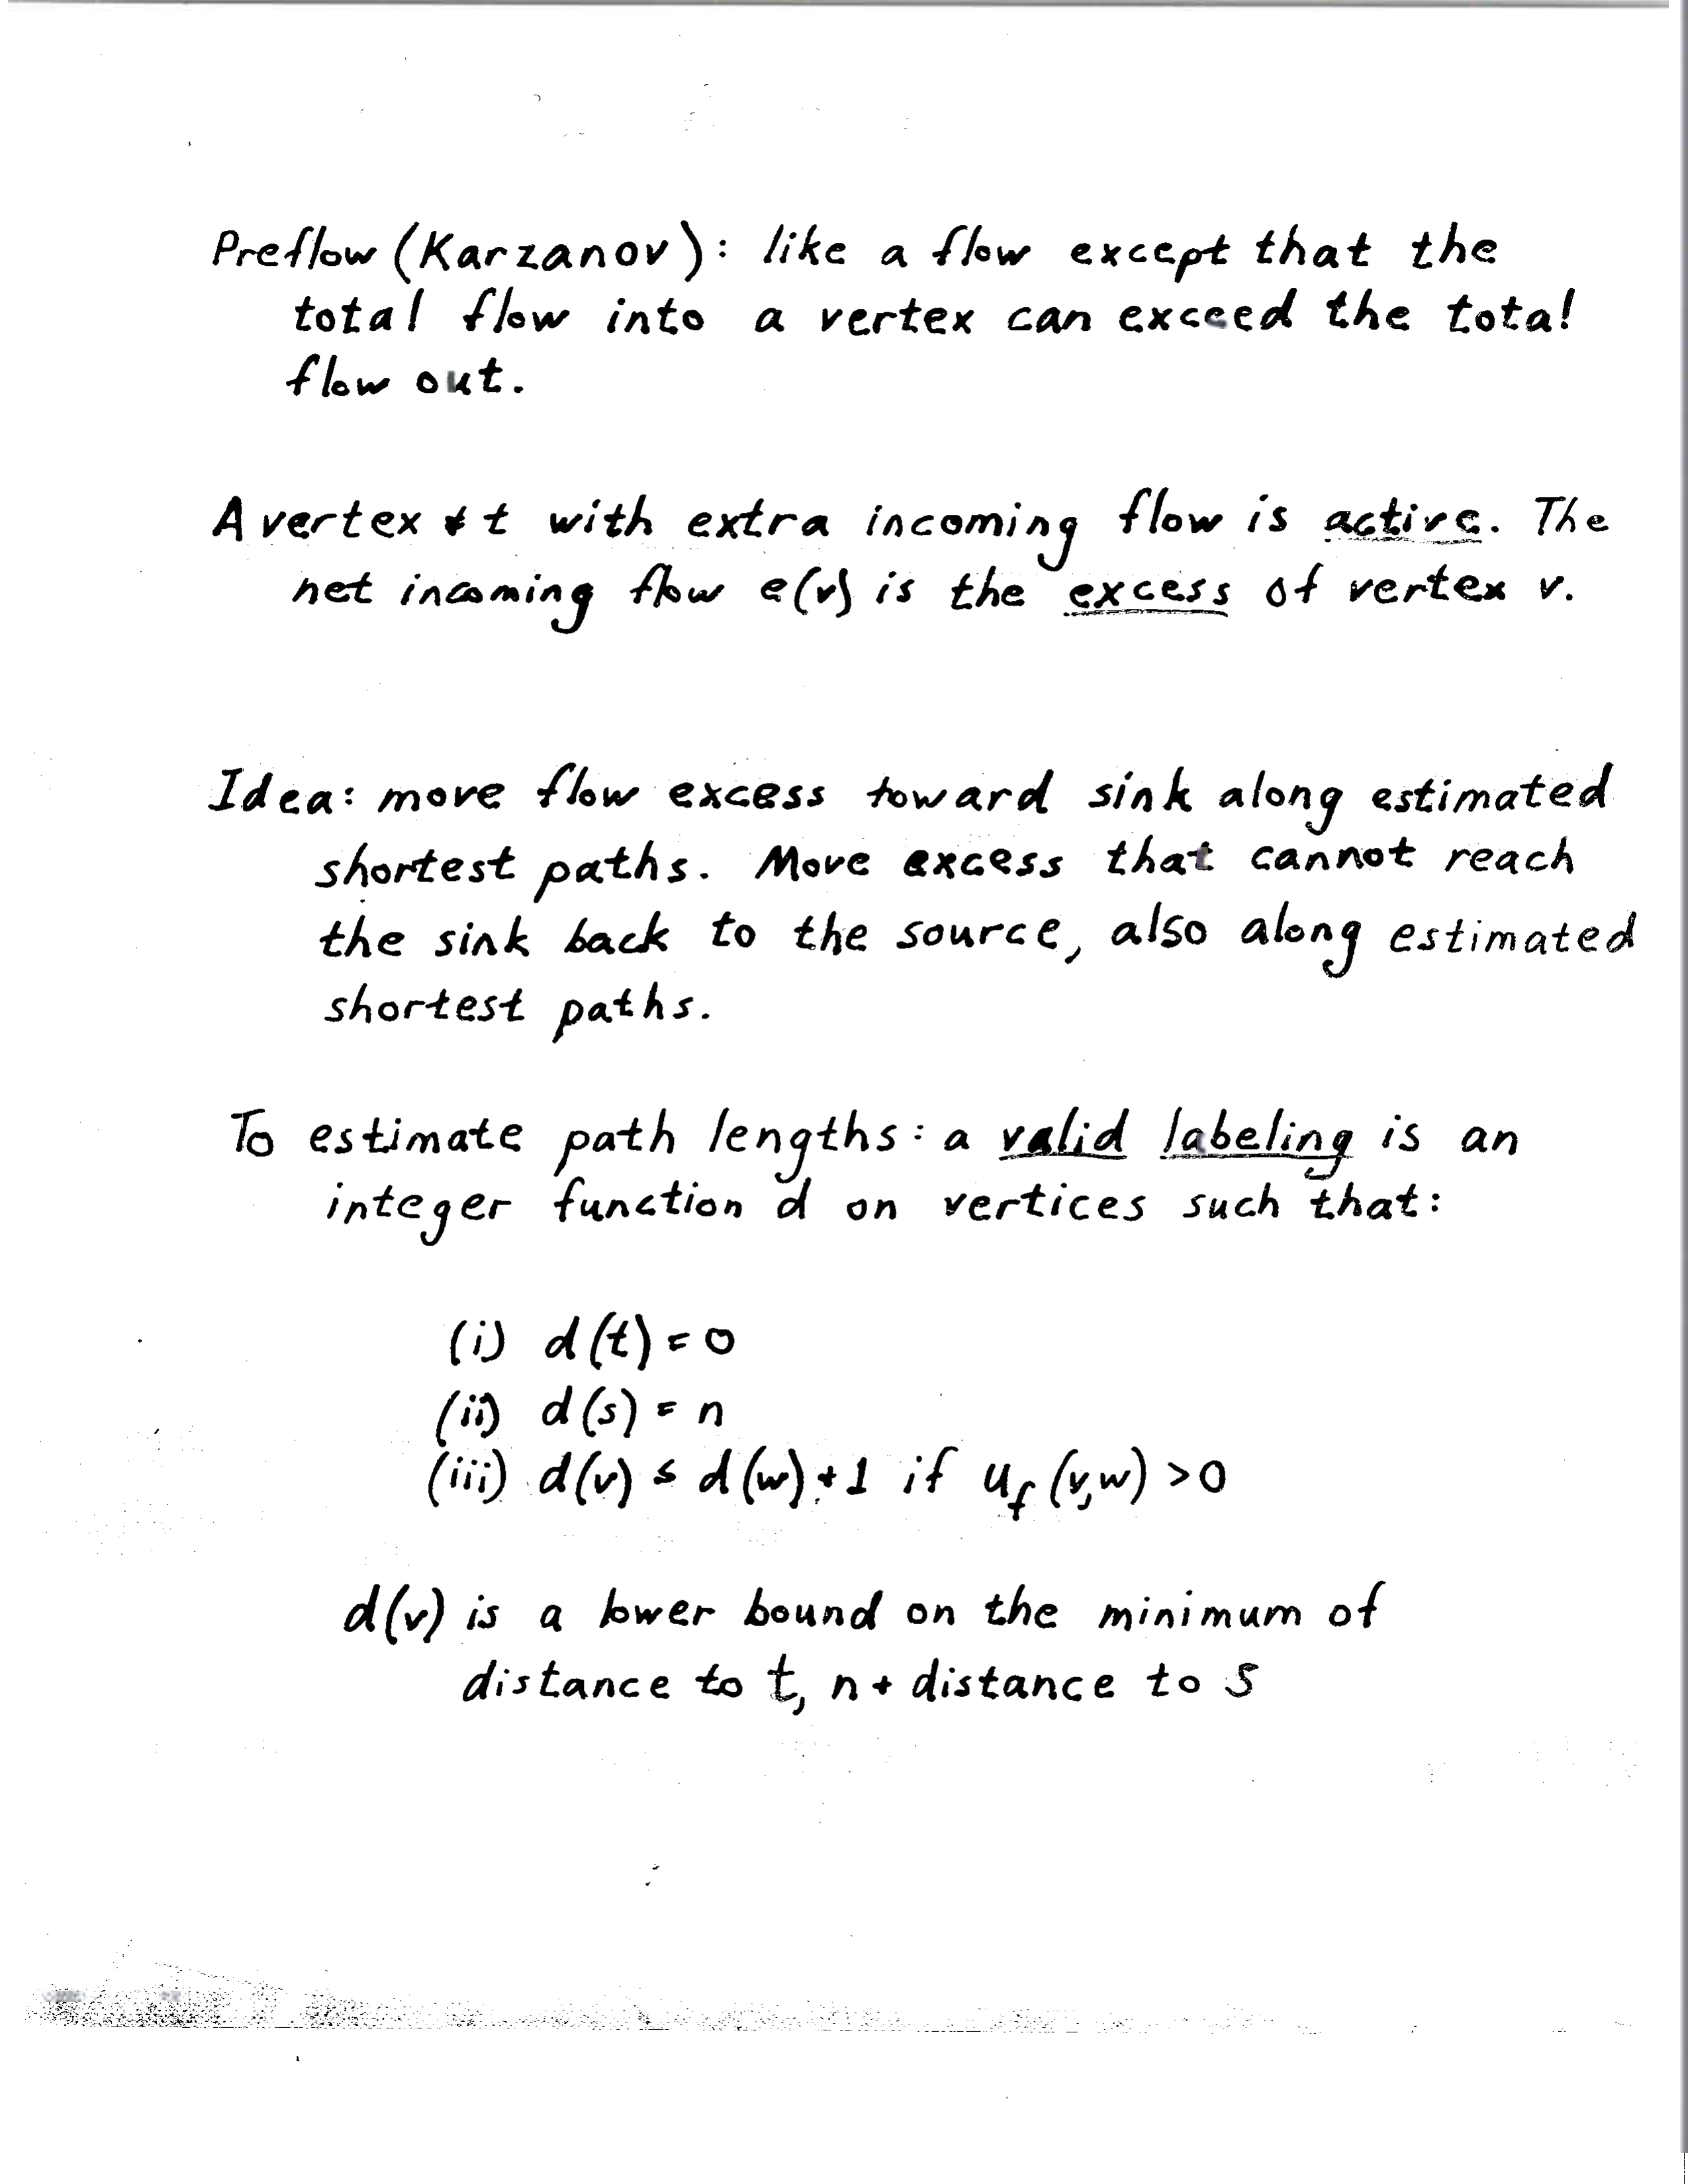 Preflow (Karzanov): like a flow except that the
total flow into a vertex can exceed the total
flow out.
A vertex ≠ t with extra incoming flow is active. The
net incoming flow e(v) is the excess of vertex v.
Idea: move flow excess toward sink along estimated
shortest paths. Move excess that cannot reach
the sink back to the source, also along estimated
shortest paths.
To estimate path lengths: a valid labeling is an
integer function d on vertices such that:
(i) d(t) = 0
(ii) d(s) = n
(iii) d(v) ≤ d(w) + 1 if u_f (v,w) > 0
d(v) is a lower bound on the minimum of
distance to t, n + distance to s